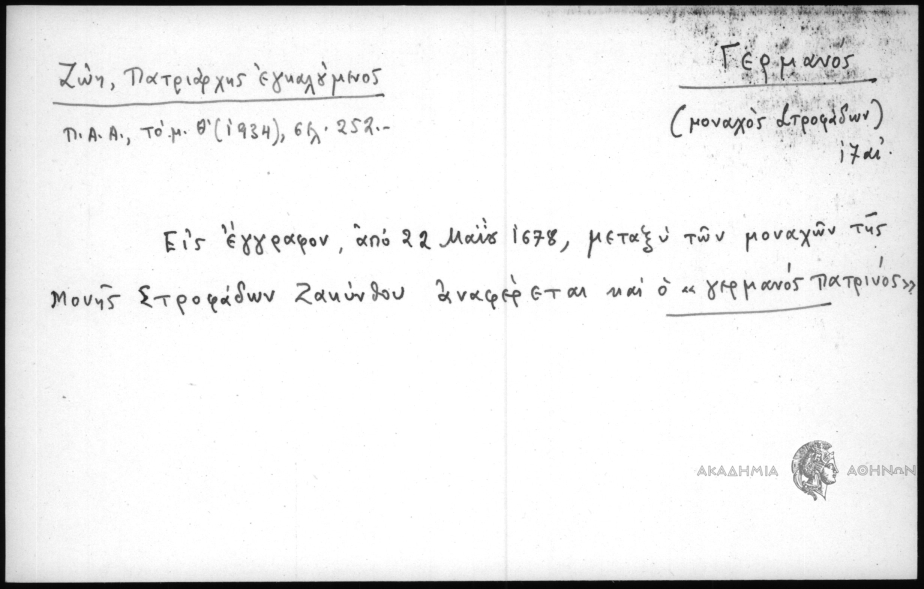 Ζώη, Πατριάρχης ἐγκαλούμενος
Π.Α.Α., τόμ. Θ' (1934), σελ. 252.-
Γερμανός
(μοναχὸς Στροφάδων)
17 αἰ.
Εἰς ἔγγραφον, ἀπό 22 Μαΐου 1678, μεταξύ τῶν μοναχῶν τῆς
Μονῆς Στροφάδων Ζακύνθου ἀναφέρεται καί ὁ «Γερμανός Πατρινός»
ΑΚΑΔΗΜΙΑ ΑΘΗΝΩΝ